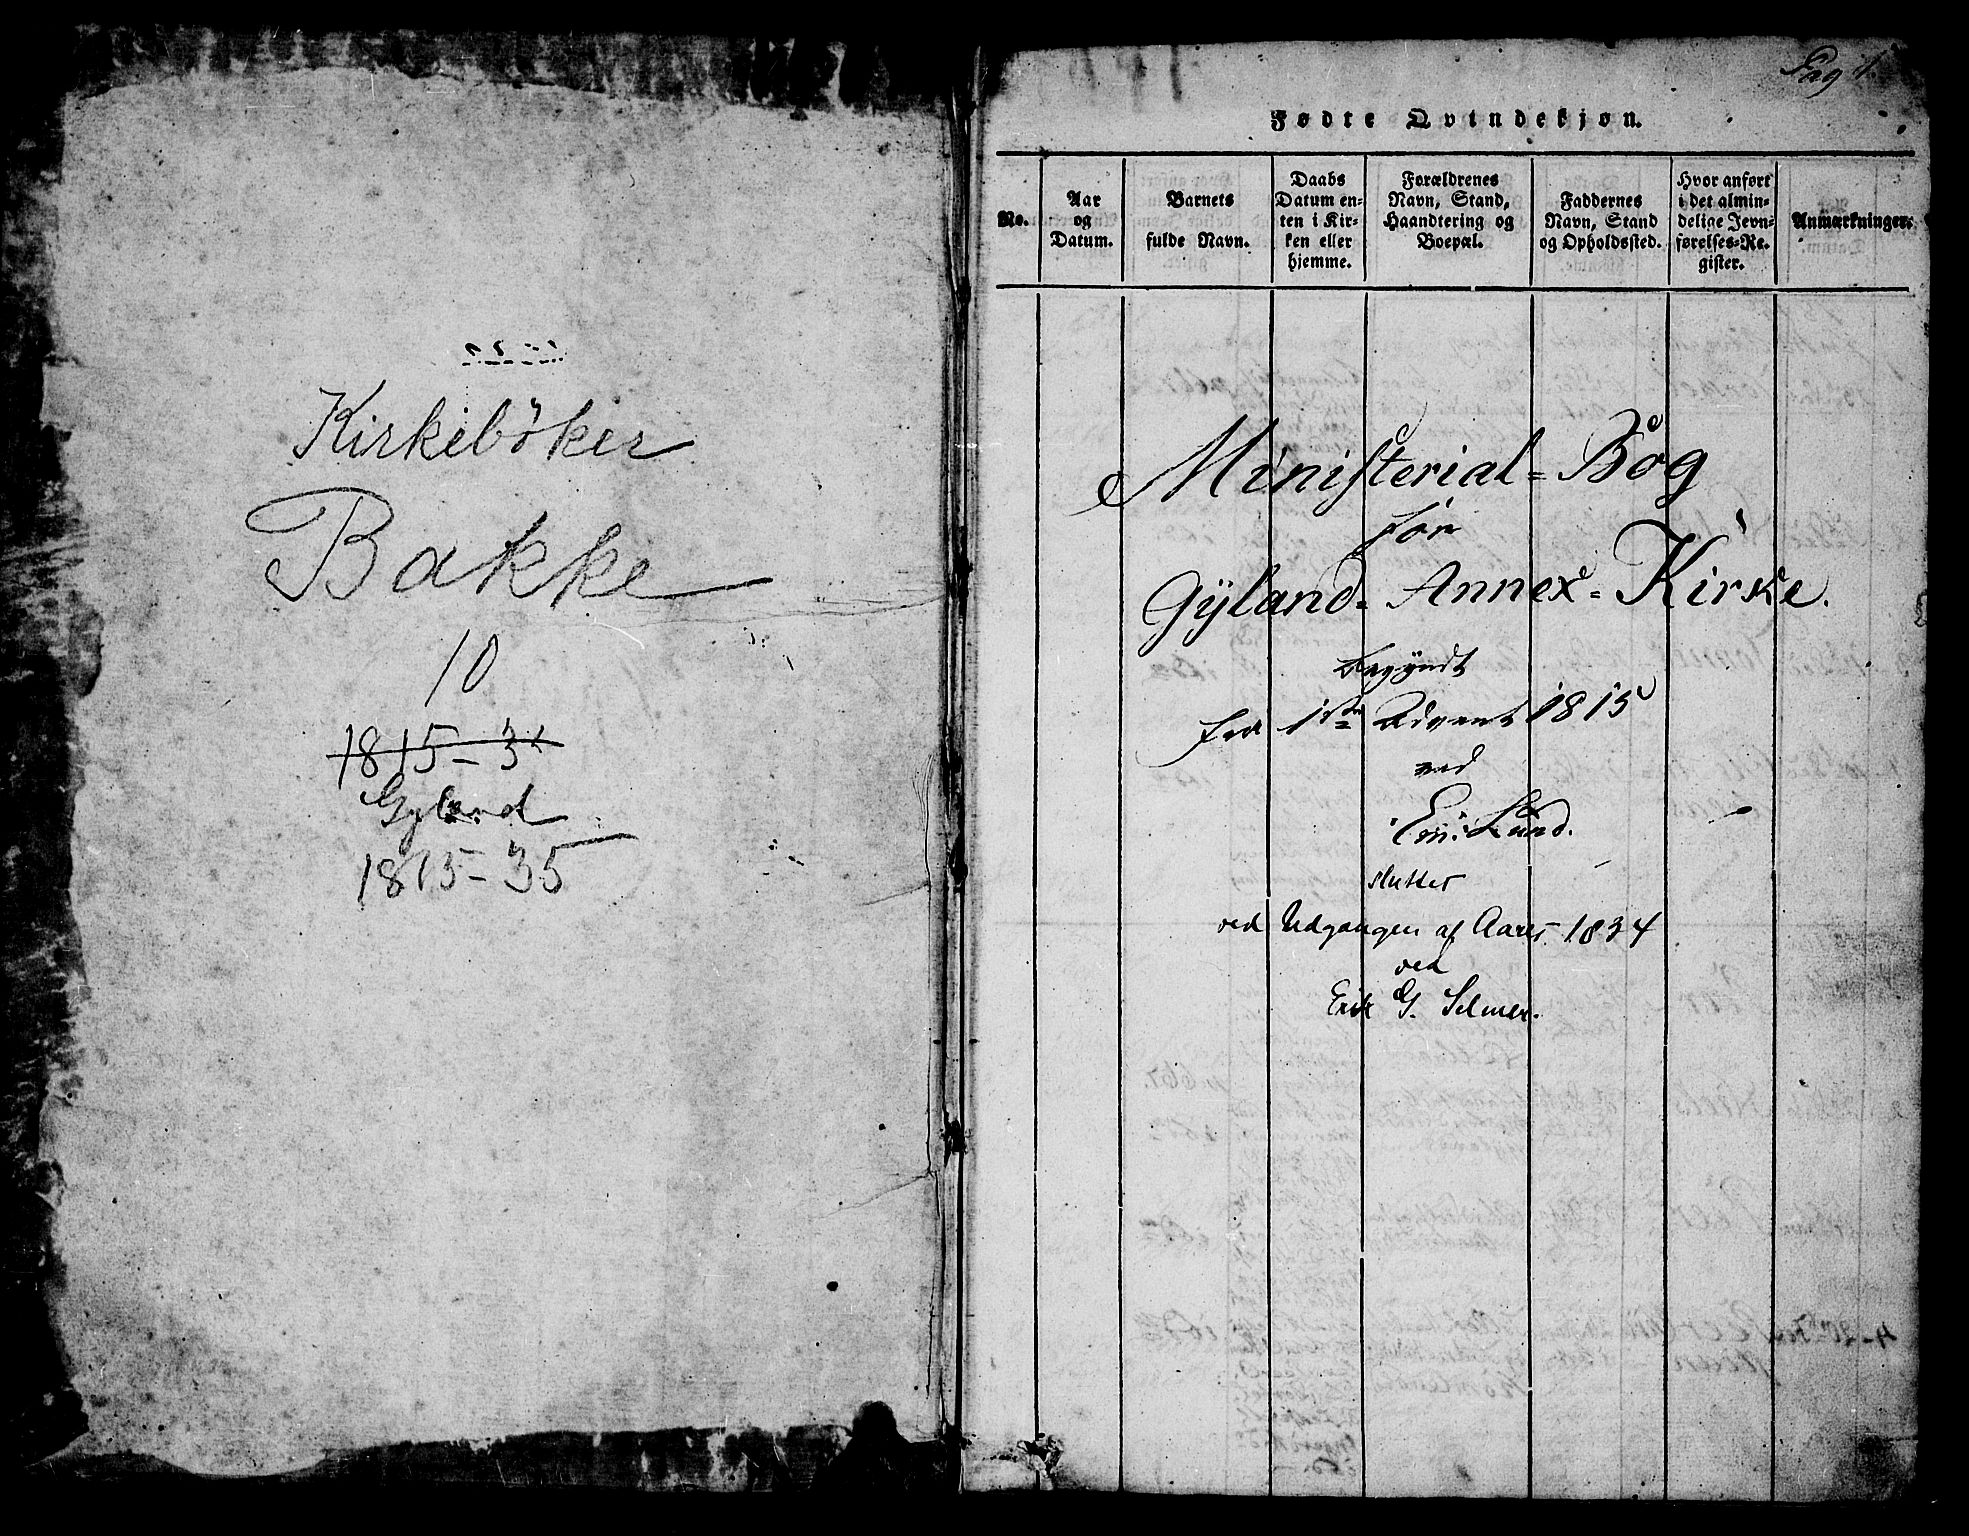 Kirkebøker
Bakke
10
1815-34
Gyland
1815-35
Pag 1.
Fødte Qvindekjøn.
No.
Aar
og
Datum.
Barnets
fulde Navn.
Daabs
Datum en-
ten i Kir-
ken eller
hjemme.
Forældrenes
Navn, Stand,
Haandtering og
Boepæl.
Faddernes
Navn, Stand
og Opholdssted.
Hvor anført
i det almin-
delige Jevn-
førelses-Re-
gister.
Anmærkninger.
Ministerial-Bog
for
Gyland-Annex-Kirke.
begyndt
fra 1ste Advent 1815
ved
Em: Lund.
slutter
ved Udgangen af Aaret 1834
ved
Erik G. Selmer.